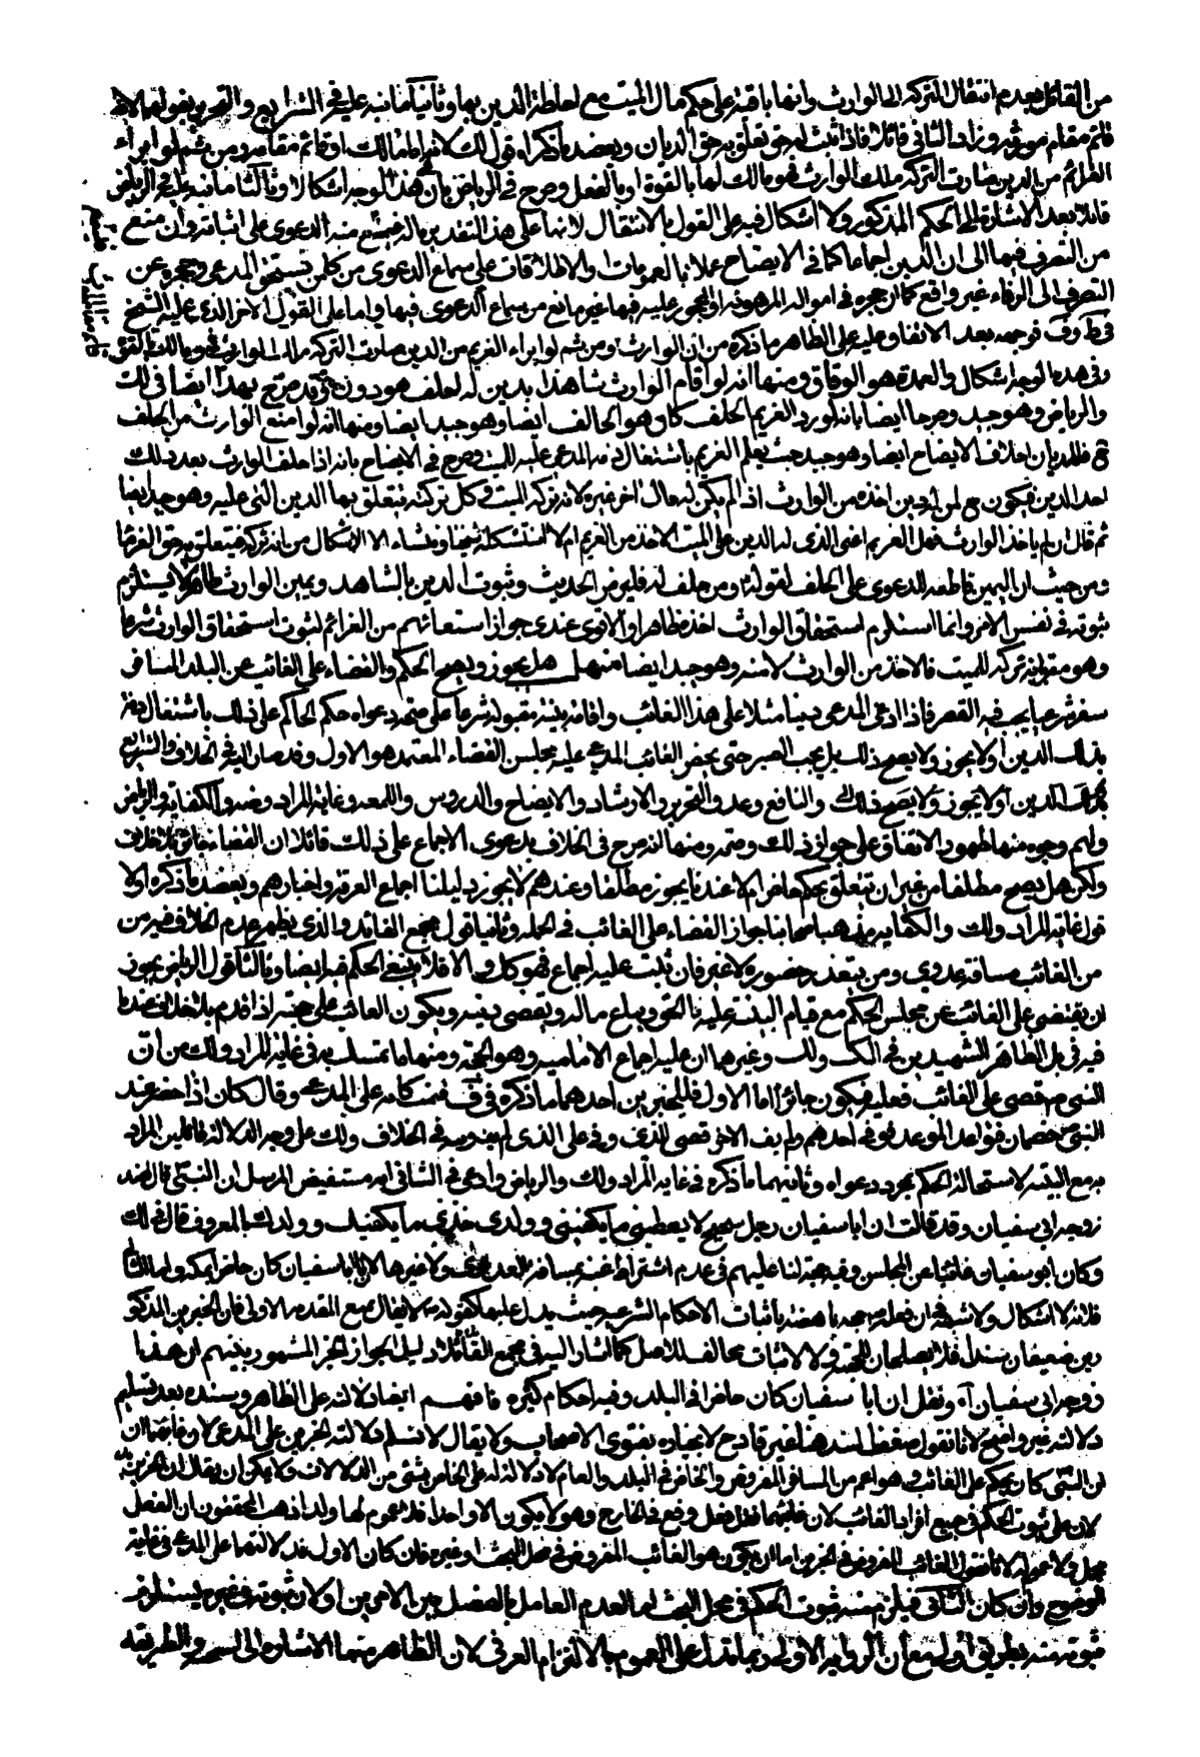 من القائل بعدم انتقال التركة الى الوارث وانها باقية على حكم مال الميت مع احاطة الدين بها وثانيا ما نبه عليه في الشرايع والتحرير بقولهما لانه
قائم مقام مورثه وزاد الثاني قائلا فاذا ثبت له حق تعلق به حق الديان ويعضد ما ذكراه قول لك لانه اما مالك او قائم مقامه ومن ثم لو ابراء
الغرائم من الدين صارت التركة ملك الوارث فهو مالك لها بالقوة او بالفعل وصرح في الرياض بان هذا الوجه اشكالا وثالثا ما نبه عليه في الرياض
قائلا بعد الاشارة الى الحكم المذكور ولا اشكال فيه على القول بالانتقال لانها على هذا التقدير ماله فيسمع منه الدعوى على اثباته وان منع
من التصرف فيها الى ان الدين اجماعا كما في الايضاح عملا بالعمومات والاطلاقات على سماع الدعوى من كل من يستحق المدعى وحجره عن
التصرف الى الوفاء غير واقع كما ان حجره في امواله المرهونة او المحجور عليه فيها غير مانع من سماع الدعوى فيها واما على القول الآخر الذي عليه الشيخ
في ط وف فوجهه بعد الاتفاق عليه على الظاهر ما ذكره من ان الوارث ومن ثم لو ابراء الغريم من الدين صارت التركة ملك الوارث فهو مالك بالقوة
وفي هذه الوجه اشكال والعمدة هو الوفاق ومنها انه لو اقام الوارث شاهدا بدين له لحلف هو دون وقد صرح بهذا ايضا في لك
والرياض وهو جيد وصرحا ايضا بانه لو رد الغريم الحلف كان هو الحالف ايضا وهو جيد ايضا ومنها انه لو امتنع الوارث من الحلف
فللديان احلاف الايضاح ايضا وهو جيد حيث يعلم الغريم باشتغال ذمة المدعى عليه للميت وصرح في الايضاح بانه اذا حلف الوارث بعد ذلك
اخذ الدين فيكون لمن اراد بدين اخذه من الوارث اذ لم يكن له مال اخر غيره لانه تركة الميت وكل تركة فتعلق بها الدين الذي عليه وهو جيد ايضا
ثم قال ان لم ياخذ الوارث فهل الغريم اعني الذي له الدين على الميت الاخذ من الغريم ام لا استشكله شيخنا ومنشاء الاشكال من انه تركة فيتعلق به حق الغرماء
ومن حيث ان اليمين قاطعة للدعوى على الحلف لقوله ومن حلف له فليرض الحديث وثبوت الدين بالشاهد ويمين الوارث ظاهرا لا يستلزم
ثبوته في نفس الامر وانما استلزم استحقاق الوارث اخذه ظاهرا والاقوى عندي جواز استعانتهم من الغرائم لثبوت استحقاق الوارث شرعا
وهو مقوله تركة للميت فالاخذ من الوارث لا منه وهو جيد ايضا منهل هل يجوز ويصح الحكم والقضاء على الغائب عن البلد المسافر
سفر شرعيا يجب فيه القصر فاذا ادعى المدعى دينا مثلا على هذا الغائب واقام بينة مقبولة شرعا على صحة دعواه حكم الحاكم على ذلك باشتغال ذمته
بذلك الدين اولا يجوز ولا يصح ذلك بل يجب الصبر حتى يحضر الغائب المدعى عليه مجلس القضاء المعتمد هو الاول وقد صار اليه في الخلاف والشرايع
بذلك الدين اولا يجوز ولا يصح ذلك والنافع وعد والتحرير والارشاد والايضاح والدروس واللمعة وغاية المراد وضه والكفاية والرياض
ولهم وجوه منها ظهور الاتفاق على جواز ذلك وصحته ومنها انه صرح في الخلاف بدعوى الاجماع على ذلك قائلا ان القضاء على الغائب بلا خلاف
ولكن هل يصح مطلقا من غير ان يتعلق بحكم حاضر ام لا عندنا يجوز مطلقا وعندهم لا يجوز دليلنا اجماع الفرقة واخبارهم ويعضد ما ذكره اولا
قول غاية المراد ولك والكفاية مذهب اصحابنا جواز القضاء على الغائب في الجملة وثانيا قول مجمع الفائدة والذي يظهر عدم الخلاف فيه من
من الغائب مسافة عدوى ومن يتعذر حضوره لا غير فان ثبت عليه اجماع فهو كل والا فلا ينبغي الحكم فيه ايضا وثالثا قول الرياض يجوز
ان يقضى على الغائب عن مجلس الحكم مع قيام البينة عليه بالحق ويباع ماله ويقضى دينه ويكون الغائب على حجته اذا قدم بلا خلاف عندنا
فيه في بل الظاهر الشهيدين في النكت ولك وغيرهما ان عليه اجماع الامامية وهو الحجة ومنها ما تمسك به في غاية المراد ولك من ان
النبي ص قضى على الغائب فعليه فيكون جائزا اما الاول فللخبرين احدهما ما ذكره في ف فتمسكا به على المدعى وقال كان اذا حضر عند
النبي ص خصمان فتواعد الموعد فوفى احدهم ولم يف الاخر قضى للذي وفى على الذي لم يف وبه في الخلاف ولك على وجه الدلالة قائلين المراد
به مع البينة لاستحالة الحكم بمجرد دعواه وثانيهما ما ذكره في غاية المراد ولك والرياض وادعى في الثاني انه مستفيض المرسل ان النبي قال لهند
زوجة ابي سفيان وقد قالت ان ابا سفيان رجل شحيح لا يعطيني ما يكفيني وولدي خذي ما يكفيك وولدك بالمعروف قال في لك
وكان ابو سفيان غائبا عن المجلس وفيه حجة لنا عليهم في عدم اشتراط غيبة بمسافة العدوى ولا غيرها لان ابا سفيان كان حاضرا بمكة واما الثانى
فلانه لا اشكال ولا شبهة في ان فعله ص حجة ناهضة باثبات الاحكام الشرعية حيث يدل عليها كقوله ص لا يقال نمنع المقدمة الاولى فان الخبرين المذكور
رين ضعيفان سندا فلا يصلحان للحجية ولا لاثبات مخالف للاصل كما اشار اليه في مجمع الفائدة قائلا دليل الجواز الخبر المشهور بينهم ان هندا
زوجة ابي سفيان آه ونقل ان ابا سفيان كان حاضرا في البلد وفيه احكام كثيرة فافهم ايضا دلالته على الظاهر وسنده بعد تسليم
دلالته غير واضح لانا نقول ضعف السند هنا غير قادح لانجباره بفتوى الاصحاب ولا يقال لا نسلم دلالة الخبرين على المدعى لان غايتهما ان
ان النبي كان يحكم على الغائب وهو اعم من المسافر المفروض والحاضر في البلد والعام لا دلالة له على الخاص بشئ من الدلالات ولا يمكن ان يقال ان الخبرين
لان على ثبوت الحكم في جميع افراد الغائب لان غايتهما نقل فعل وقع في الخارج وهو لا يكون الا واحدا فلا عموم لها ولذا ذهب المحققون ان الفعل
مجمل ولا عموم له لانا نقول الغائب المفروض في الخبرين اما ان يكون هو الغائب المفروض في محل البحث او غيره فان كان الاول فدلالتهما على المدعى في غاية
الوضوح وان كان الثاني فيلزم منه ثبوت الحكم في محل البحث اما لعدم القائل بالفصل بين الامرين او لان ثبوته في غيره يستلزم
ثبوته منه بطريق اولى مع ان الرواية الاولى ربما تدل على العموم بالالتزام العرفي لان الظاهر منهما الاشارة الى السيرة والطريقة